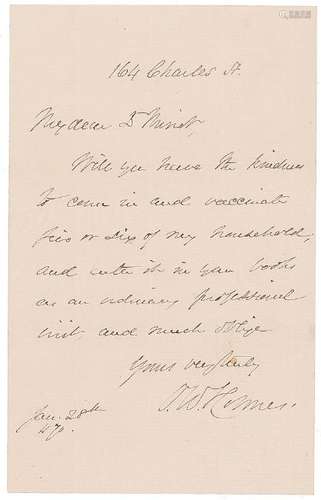 164 Charles St.
My dear Dr Minot,
Will you have the kindness
to come in and vaccinate
five or six of my household,
and enter it in your books
as an ordinary professional
visit, and much oblige
Yours very truly
O. W. Holmes.
Jan. 28th
1870.